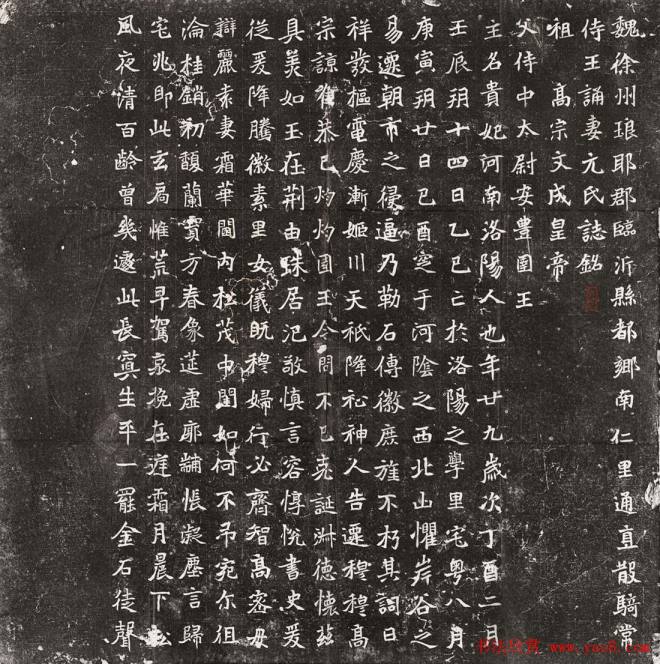 魏徐州琅耶郡臨沂縣都鄉南仁里通直散騎常
侍王誦妻元氏誌銘
祖高宗文成皇帝
父侍中太尉安豐圉王
主名貴妃河南洛陽人也年廿九歲次丁酉二月
壬辰朔十四日乙巳亡於洛陽之學里宅粵八月
庚寅朔廿日己酉窆于河陰之西北山懼岸谷之
易遷朝市之侵逼乃勒石傳徽庶旌不朽其詞曰
祥發樞電慶漸姬川天祇降祉神人告遷穆穆高
宗諒作恭己灼灼圉王令問不已克誕淋德懷茲
具美如玉在荆由蛛居汜敬慎言容惇悅書史爰
從爰降騰徽素里女儀既穆婦行必齊智高密母
辯麗素妻霜華閫內松茂中閨如何不弔宛尓徂
淪桂銷初馥蘭實方春象筵虛廓黼悵凝塵言歸
宅兆即此玄扃惟荒早駕哀挽在庭霜月晨下松
風夜清百齡曾幾遽此長冥生平一罷金石徒聲
书法欣赏 www.yac8.com